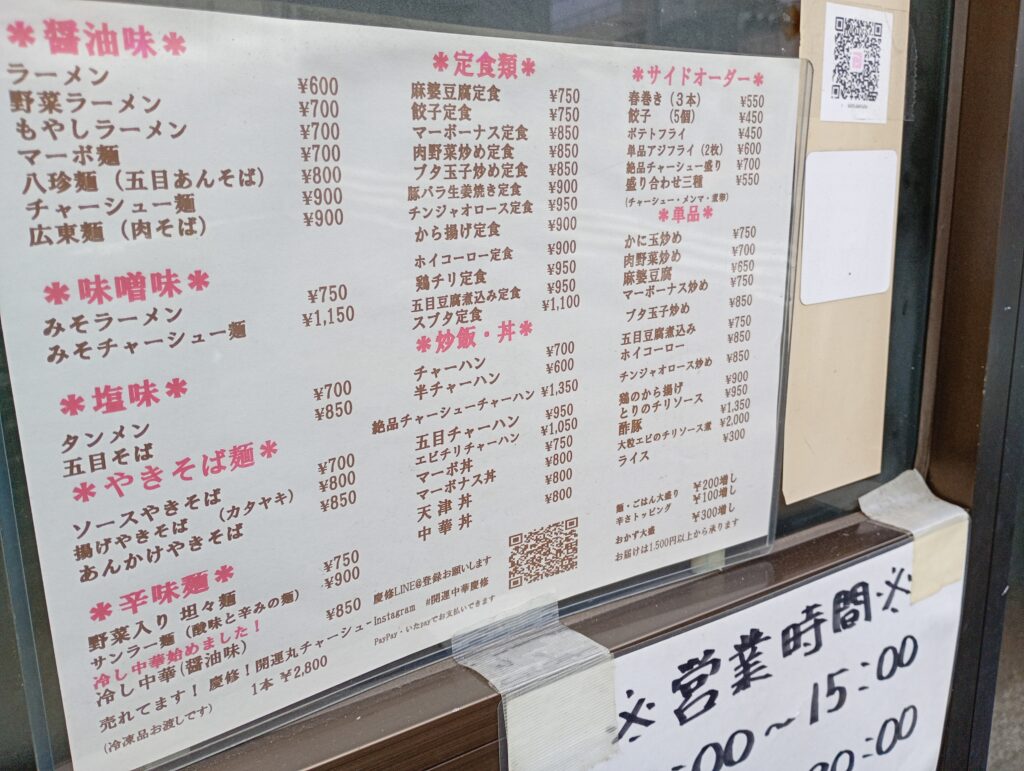 *醤油味*
ラーメン ¥600
野菜ラーメン ¥700
もやしラーメン ¥700
マーボ麺 ¥700
八珍麺（五目あんそば） ¥800
チャーシュー麺 ¥900
広東麺（肉そば） ¥900
*味噌味*
みそラーメン ¥750
みそチャーシュー麺 ¥1,150
*塩味*
タンメン ¥700
五目そば ¥850
*やきそば麺*
ソースやきそば ¥700
揚げやきそば （カタヤキ） ¥800
あんかけやきそば ¥850
*辛味麺*
野菜入り 坦々麺 ¥750
サンラー麺（酸味と辛みの麺） ¥900
冷し中華始めました！
冷し中華(醤油味) ¥850
売れてます！ 慶修！開運丸チャーシュー
1本 ¥2,800
(冷凍品お渡しです)
*定食類*
麻婆豆腐定食 ¥750
餃子定食 ¥750
マーボーナス定食 ¥850
肉野菜炒め定食 ¥850
ブタ玉子炒め定食 ¥850
豚バラ生姜焼き定食 ¥900
チンジャオロース定食 ¥950
から揚げ定食 ¥900
ホイコーロー定食 ¥900
鶏チリ定食 ¥950
五目豆腐煮込み定食 ¥950
スブタ定食 ¥1,100
*炒飯・丼*
チャーハン ¥700
半チャーハン ¥600
絶品チャーシューチャーハン ¥1,350
五目チャーハン ¥950
エビチリチャーハン ¥1,050
マーボ丼 ¥750
マーボナス丼 ¥800
天津丼 ¥800
中華丼 ¥800
慶修LINE@登録お願いします
Instagram #開運中華慶修
PayPay・いたpayでお支払いできます
*サイドオーダー*
春巻き（３本） ¥550
餃子 （5個） ¥450
ポテトフライ ¥450
単品アジフライ（2枚） ¥600
絶品チャーシュー盛り ¥700
盛り合わせ三種 ¥550
(チャーシュー・メンマ・煮卵)
*単品*
かに玉炒め ¥750
肉野菜炒め ¥700
麻婆豆腐 ¥650
マーボーナス炒め ¥750
ブタ玉子炒め ¥850
五目豆腐煮込み ¥750
ホイコーロー ¥850
チンジャオロース炒め ¥850
鶏のから揚げ ¥900
とりのチリソース ¥950
酢豚 ¥1,350
大粒エビのチリソース煮 ¥2,000
ライス ¥300
麺・ごはん大盛り ¥200増し
辛さトッピング ¥100増し
おかず大盛 ¥300増し
お届けは1,500円以上から承ります
※営業時間※
:00～15:00
:00